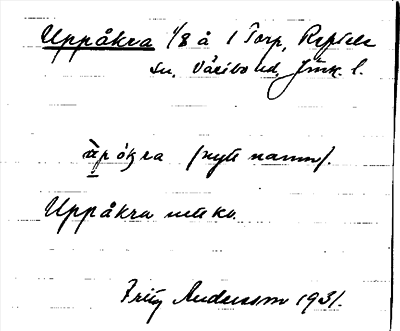 Uppåkra 1/8 å 1 Torp, Reftele
sn, Västbo hd, Jönk. l.
ùpókra (nytt namn).
Uppåkra
Fritz Andersson 1931.